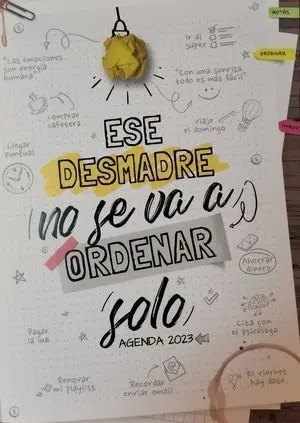 NOTAS
Ir al
súper
ORDENAR
"Las emociones
son energía
humana"
"Con una sonrisa
todo es más fácil"
Comprar
cafetera
Viaje
el domingo
Llegar
puntual
ESE
DESMADRE
no se va a
ORDENAR
solo
AGENDA 2023
Ahorrar
dinero
Cita con
el psicólogo
Pagar
la luz
Renovar
mi playlist
Recordar
enviar email
El viernes
hay date